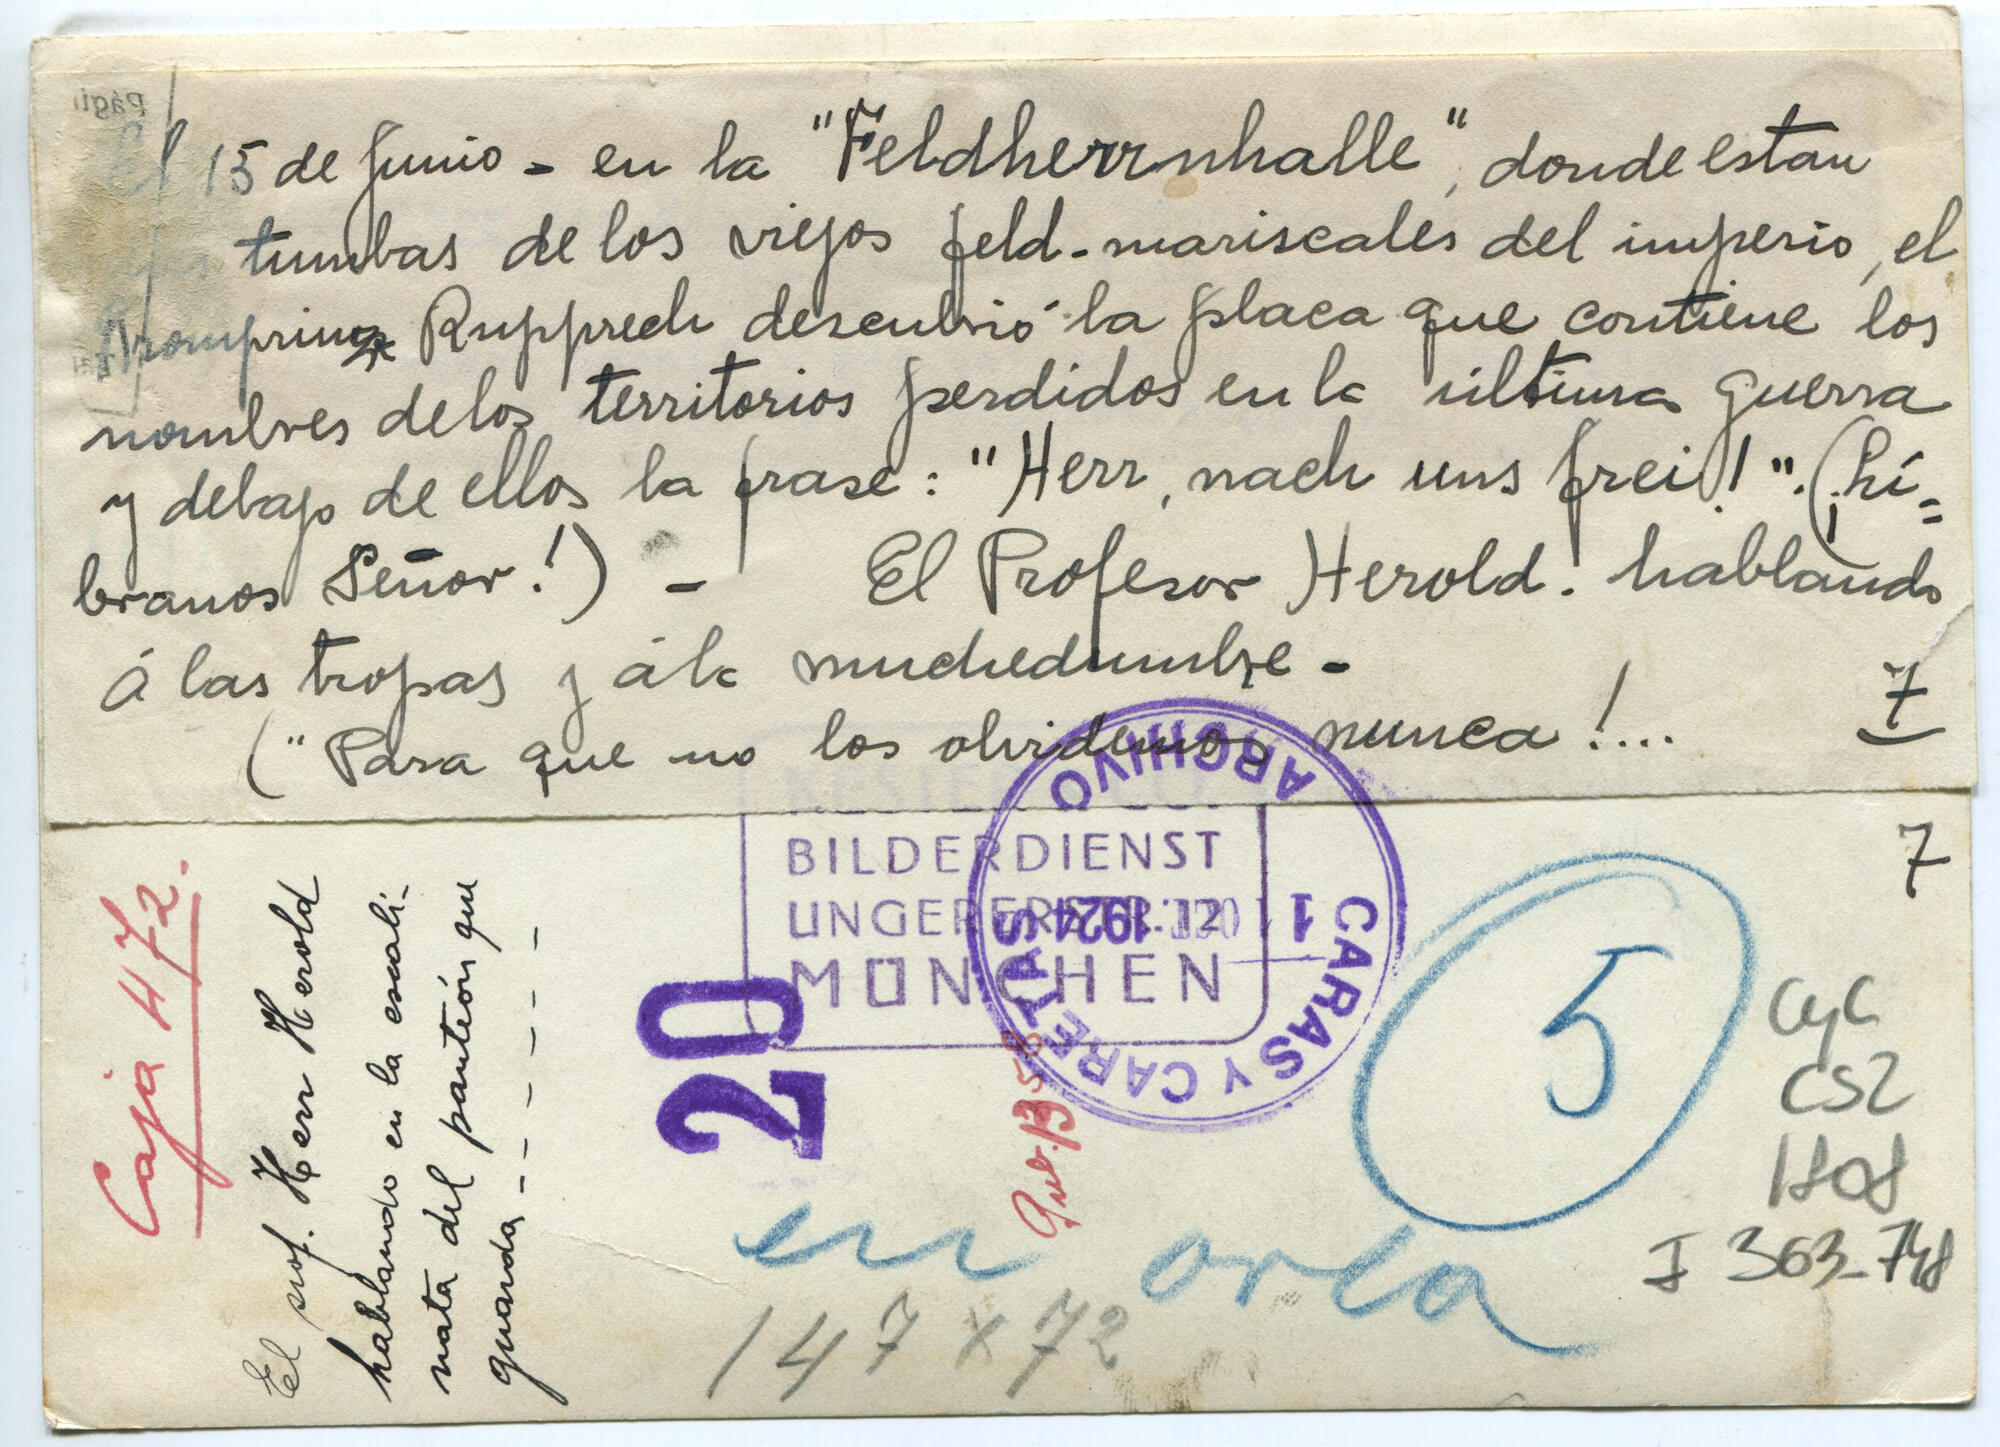 El 15 de Junio - en la "Feldherrnhalle", donde estan
tumbas de los viejos feld-mariscales del imperio, el
Kromprinz Rupprech descubrió la placa que contiene los
nombres de los territorios perdidos en la última guerra
y debajo de ellos la frase: "Herr, nach uns frei!". (¡Lí=
branos Señor!) - El Profesor Herold. hablando
á las tropas y á la muchedumbre -
("Para que no los olvidemos nunca!....
7
7
BILDERDIENST
UNGERERSTR.
MÜNCHEN
ARCHIVO
CARAS Y CARETAS
1 1924
20
Caja 472.
El prof. Herr Herold
hablando en la escali-
nata del panteón que
guarda - - - - - -
5
CyC
CS2
1808
I 363-748
en orla
147 x 72